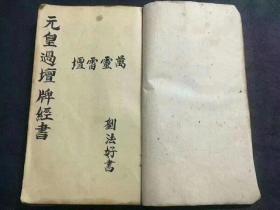 元皇過壇牌經書
萬靈雷壇
劉法好書